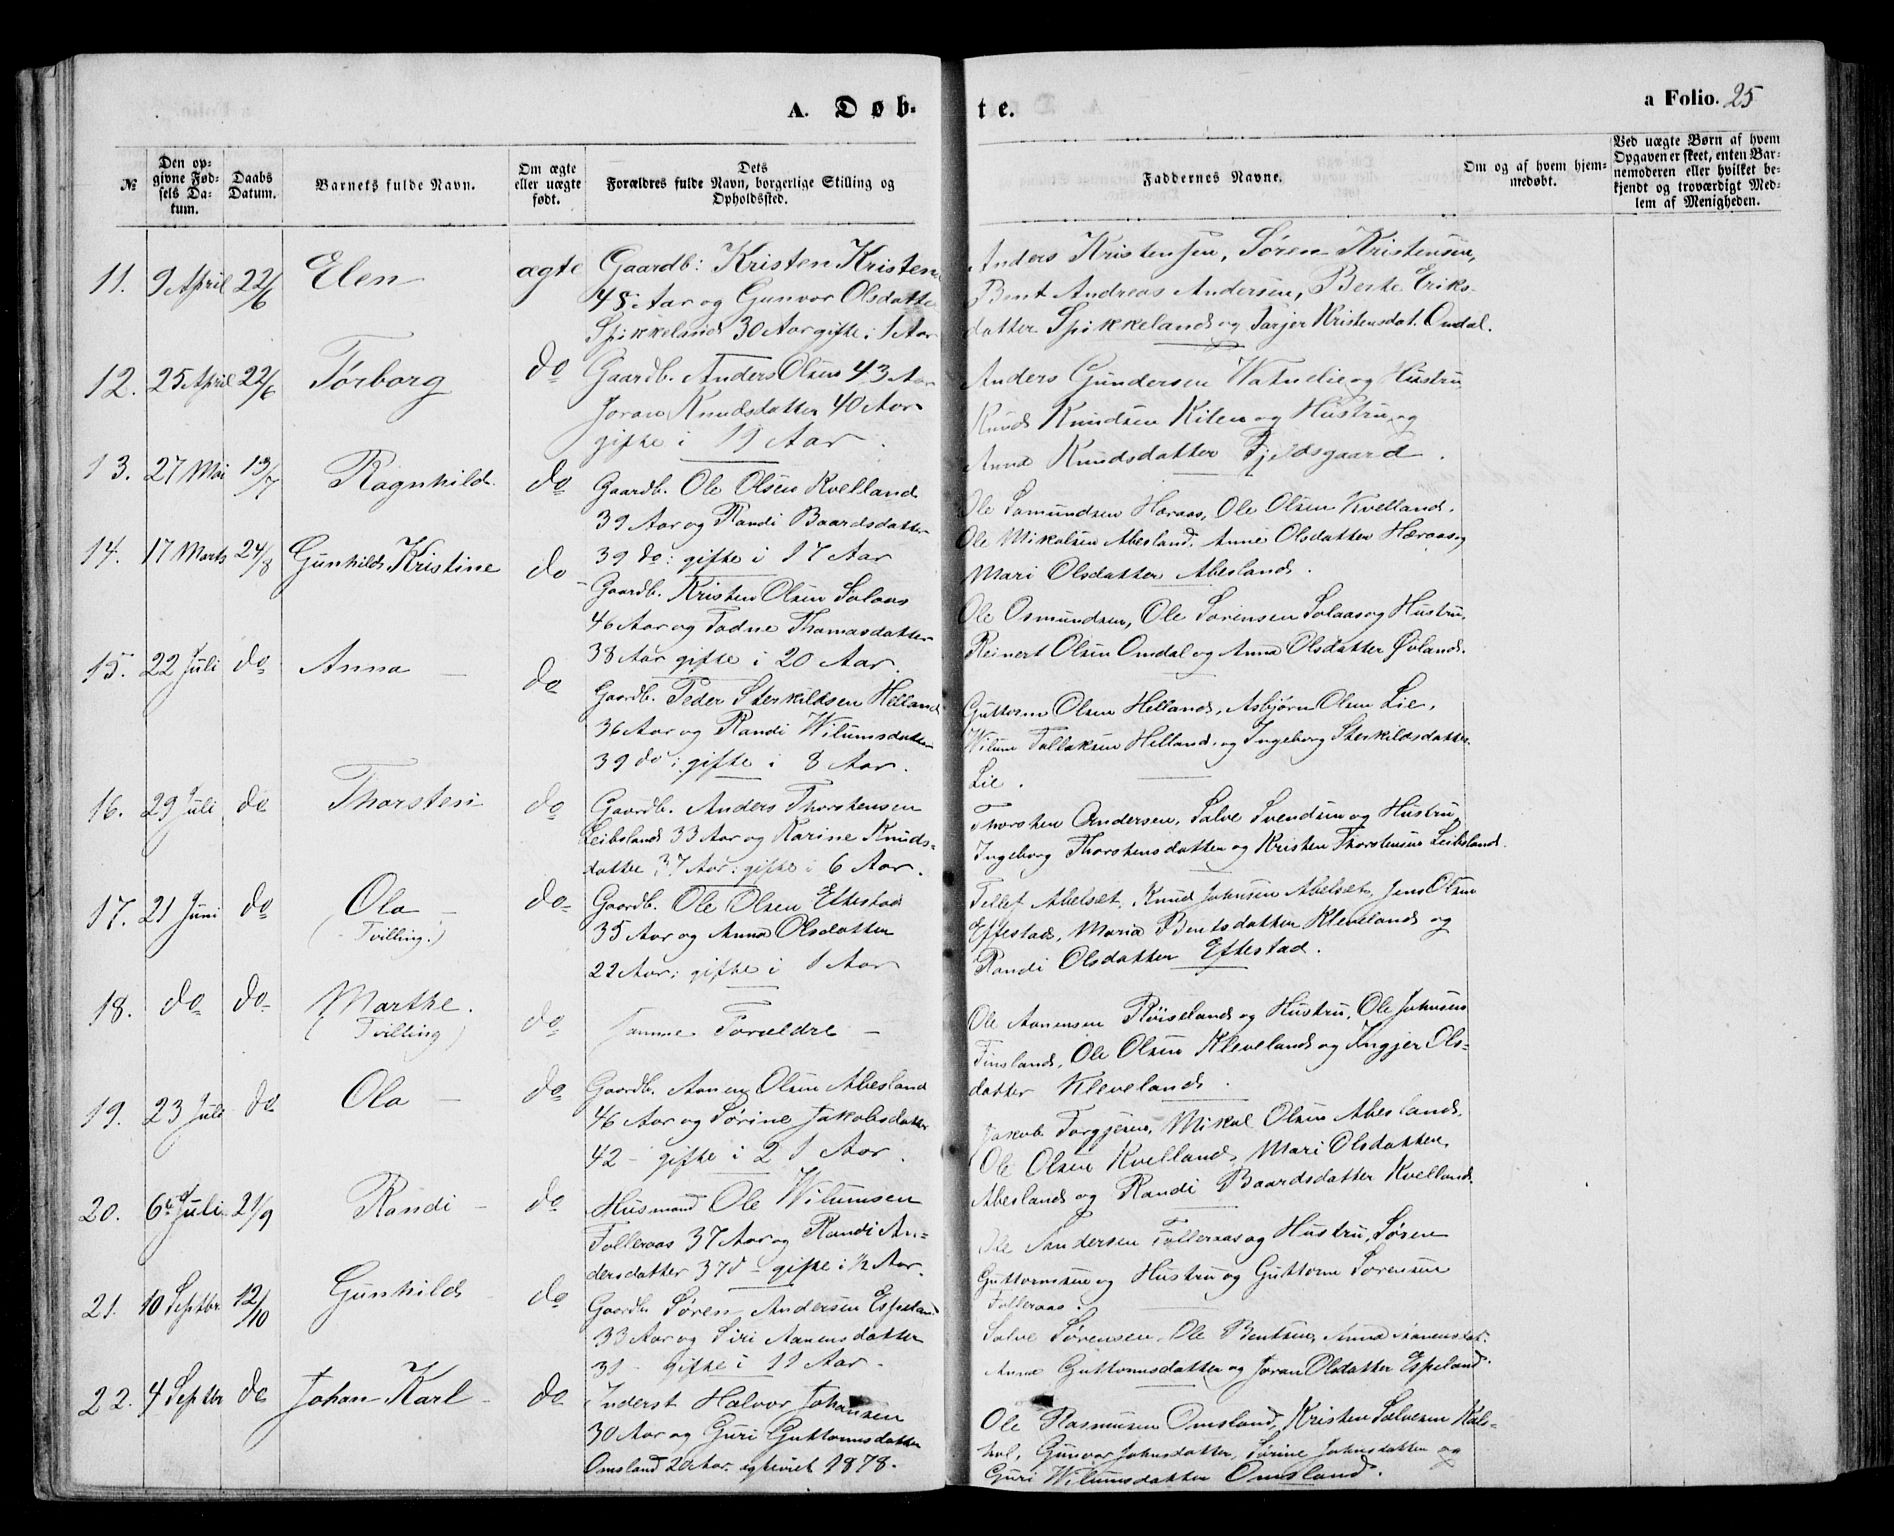 A. Døb-
te.
a Folio. 25
№
Den op-
givne Fød-
sels Da-
tum.
Daabs
Datum.
Barnets fulde Navn.
Om ægte
eller uægte
født.
Dets
Forældres fulde Navn, borgerlige Stilling og
Opholdssted.
Faddernes Navne.
Om og af hvem hjem-
medøbt.
Ved uægte Børn af hvem
Opgaven er skeet, enten Bar-
nemoderen eller hvilket be-
kjendt og troværdigt Med-
lem af Menigheden.
11. 9 April 22/6 Elen ægte
Gaardb: Kristen Kristens
45 Aar og Gunvor Olsdatter
Spikkeland 30 Aar gifte i 1 Aar
Anders Kristensen, Søren Kristensen,
Bent Andreas Andersen, Berte Eriks-
datter Spikkeland og Tarjer Kristensdat. Omdal.
12. 25 April 22/6 Tørborg do
Gaardb. Anders Olsen 43 Aar
Joran Knudsdatter 40 Aar
gifte i 19 Aar.
Anders Gundersen Watnelie og Hustru
Knud Knudsen Kilen og Hustru og
Anna Knudsdatter Fjeldsgaard.
13. 27 Mai 13/7 Ragnhild do
Gaardb. Ole Olsen Kvelland
39 Aar og Randi Baardsdatter
39 do: gifte i 17 Aar
Ole Samundsen Høraas, Ole Olsen Kvelland,
Ole Mikalsen Abesland, Anne Olsdatter Høraas og
Mari Olsdatter Abesland.
14. 17 Marts 24/8 Gunhild Kristine do
Gaardb. Kristen Olsen Solaas
46 Aar og Tadne Thomasdatter
38 Aar gifte i 20 Aar.
Ole Osmundsen, Ole Sørensen Solaas og Hustru,
Reinert Olsen Omdal og Anna Olsdatter Øvland.
15. 22 Juli do Anna do
Gaardb. Peder Sterkildsen Helland
36 Aar og Randi Wilumsdatter
39 do: gifte i 8 Aar.
Guttorm Olsen Helland, Asbjørn Olsen Lie,
Wilum Tallaksen Helland, og Ingeborg Sterkildsdatter
Lie.
16. 29 Juli do Thorsten do
Gaardb. Anders Thorstensen
Leibsland 33 Aar og Karine Knuds-
datter 37 Aar: gifte i 6 Aar.
Thorsten Andersen, Salve Svendsen og Hustru
Ingeborg Thorstensdatter og Kristen Thorstensen Leibsland.
17. 21 Juni do Ola do
(Tvilling.)
Gaardb. Ole Olsen Eftestad
35 Aar og Anna Olsdatter
22 Aar: gifte i 1 Aar
Tellef Abelset, Knud Johnsen Abelset, Jens Olsen
Eftestad, Maria Bentsdatter Kleveland og
Randi Olsdatter Eftestad.
18. do do Marthe. do
(Tvilling)
Samme Forældre
Ole Aanensen Røiseland og Hustru, Ole Johnsen
Finsland, Ole Olsen Kleveland og Ingjer Ols-
datter Kleveland.
19. 23 Juli do Ola do
Gaardb. Aanen Olsen Abesland
46 Aar og Sørine Jakobsdatter
42 - gifte i 21 Aar.
Jakob Torgjersen, Mikal Olsen Abesland,
Ole Olsen Kvelland, Mari Olsdatter
Abesland og Randi Baardsdatter Kvelland.
20. 6te Juli 21/9 Randi do
Husmand Ole Wilumsen
Folleraas 37 Aar og Randi An-
dersdatter 37 d - gifte i ½ Aar.
Ole Andersen Folleraas og Hustru, Søren
Guttormsen og Hustru og Guttorm Sørensen
Folleraas.
21. 10 Septbr 12/10 Gunhild do
Gaardb. Søren Andersen Espeland
33 Aar og Siri Aanensdatter
31 - gifte i 11 Aar.
Salve Sørensen, Ole Bentsen, Anna Aanensdat.
Anne Guttormsdatter og Joran Olsdatter Espeland.
22. 4 Septbr do Johan Karl do
Inderst Halvor Johansen
30 Aar og Guri Guttormsdatter
Omsland 20 Aar. ægteviet 1878.
Ole Rasmusen Omsland, Kristen Salvesen Kals-
hol, Gunvor Johnsdatter, Sørine Johnsdatter og
Guri Wilumsdatter Omsland.